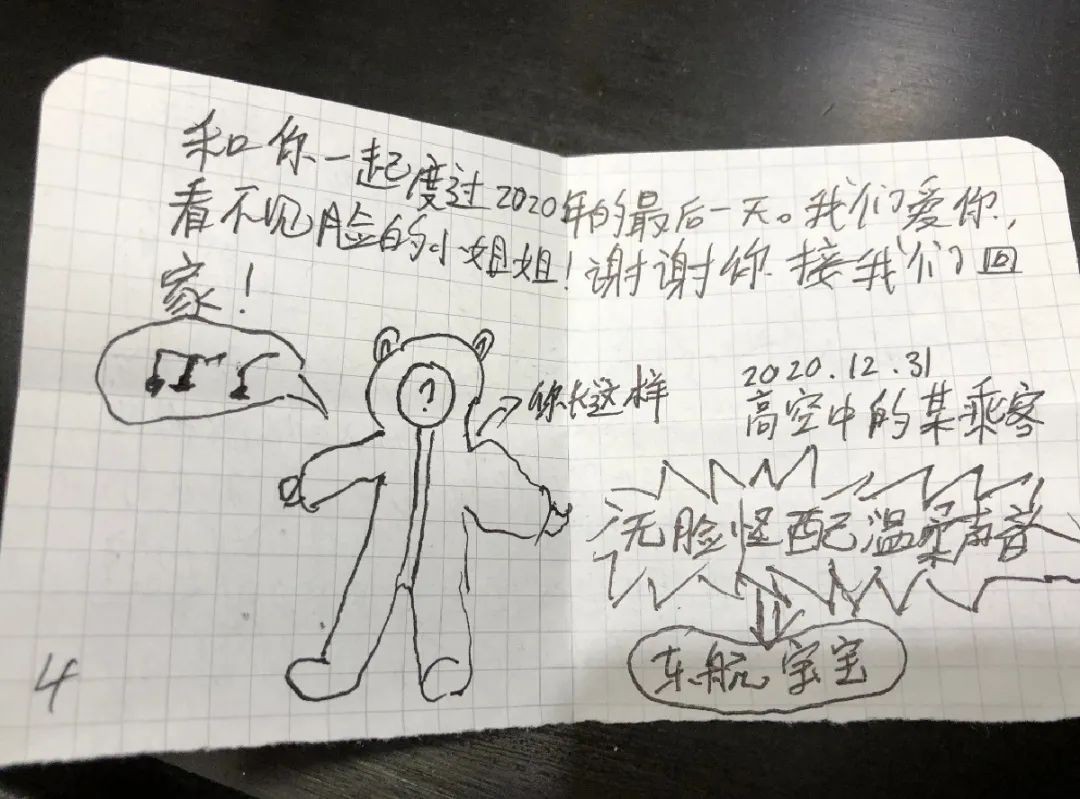 和你一起度过2020年的最后一天。我们爱你,
看不见脸的小姐姐!谢谢你接我们回
家!
?
你长这样
2020.12.31
高空中的某乘客
无脸怪配温柔声音
东航宝宝
4